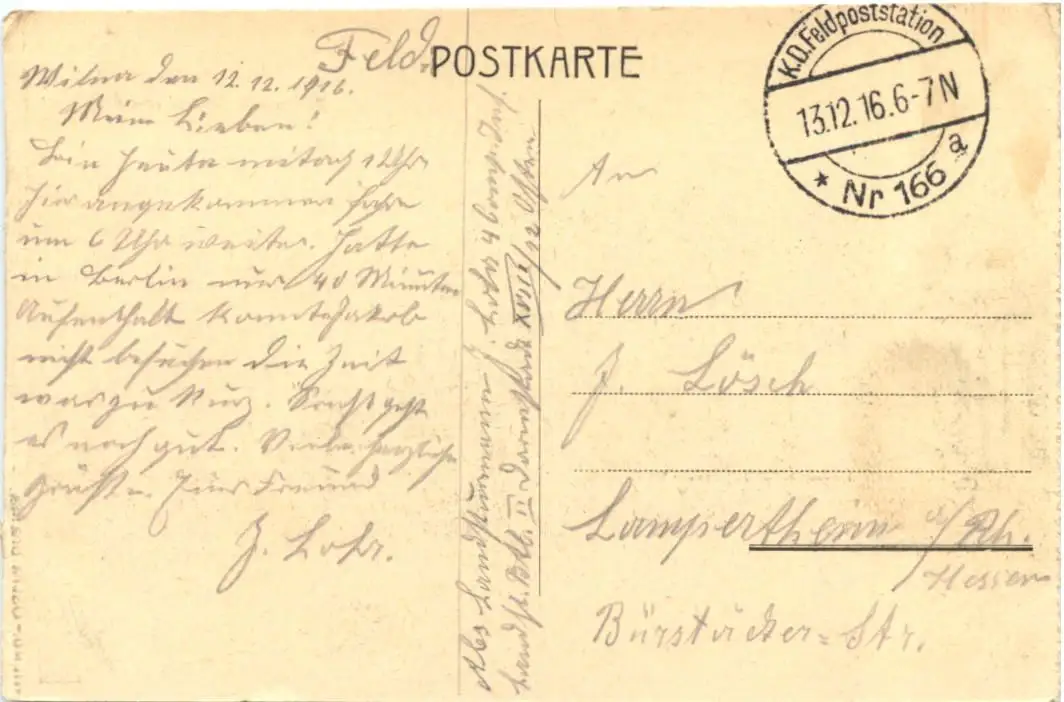 Feld POSTKARTE
K.D. Feldpoststation
13.12.16. 6-7 N
* Nr 166 a
Wilna den 12.12.1916.
Meine Lieben!
Bin heute mittag 1 Uhr
hier angekommen fahre
um 6 Uhr weiter. Hatte
in Berlin nur 40 Minuten
Aufenthalt konnte Jakob
nicht besuchen die Zeit
war zu kurz. Sonst geht
es noch gut. Viele herzliche
Grüße. Euer Freund
J. Lohr.
Landst. Btl. II Darmstadt XVIII/
An
Herrn
J. Lösch
Lampertheim a/Rh.
Hessen
Bürstädter-Str.